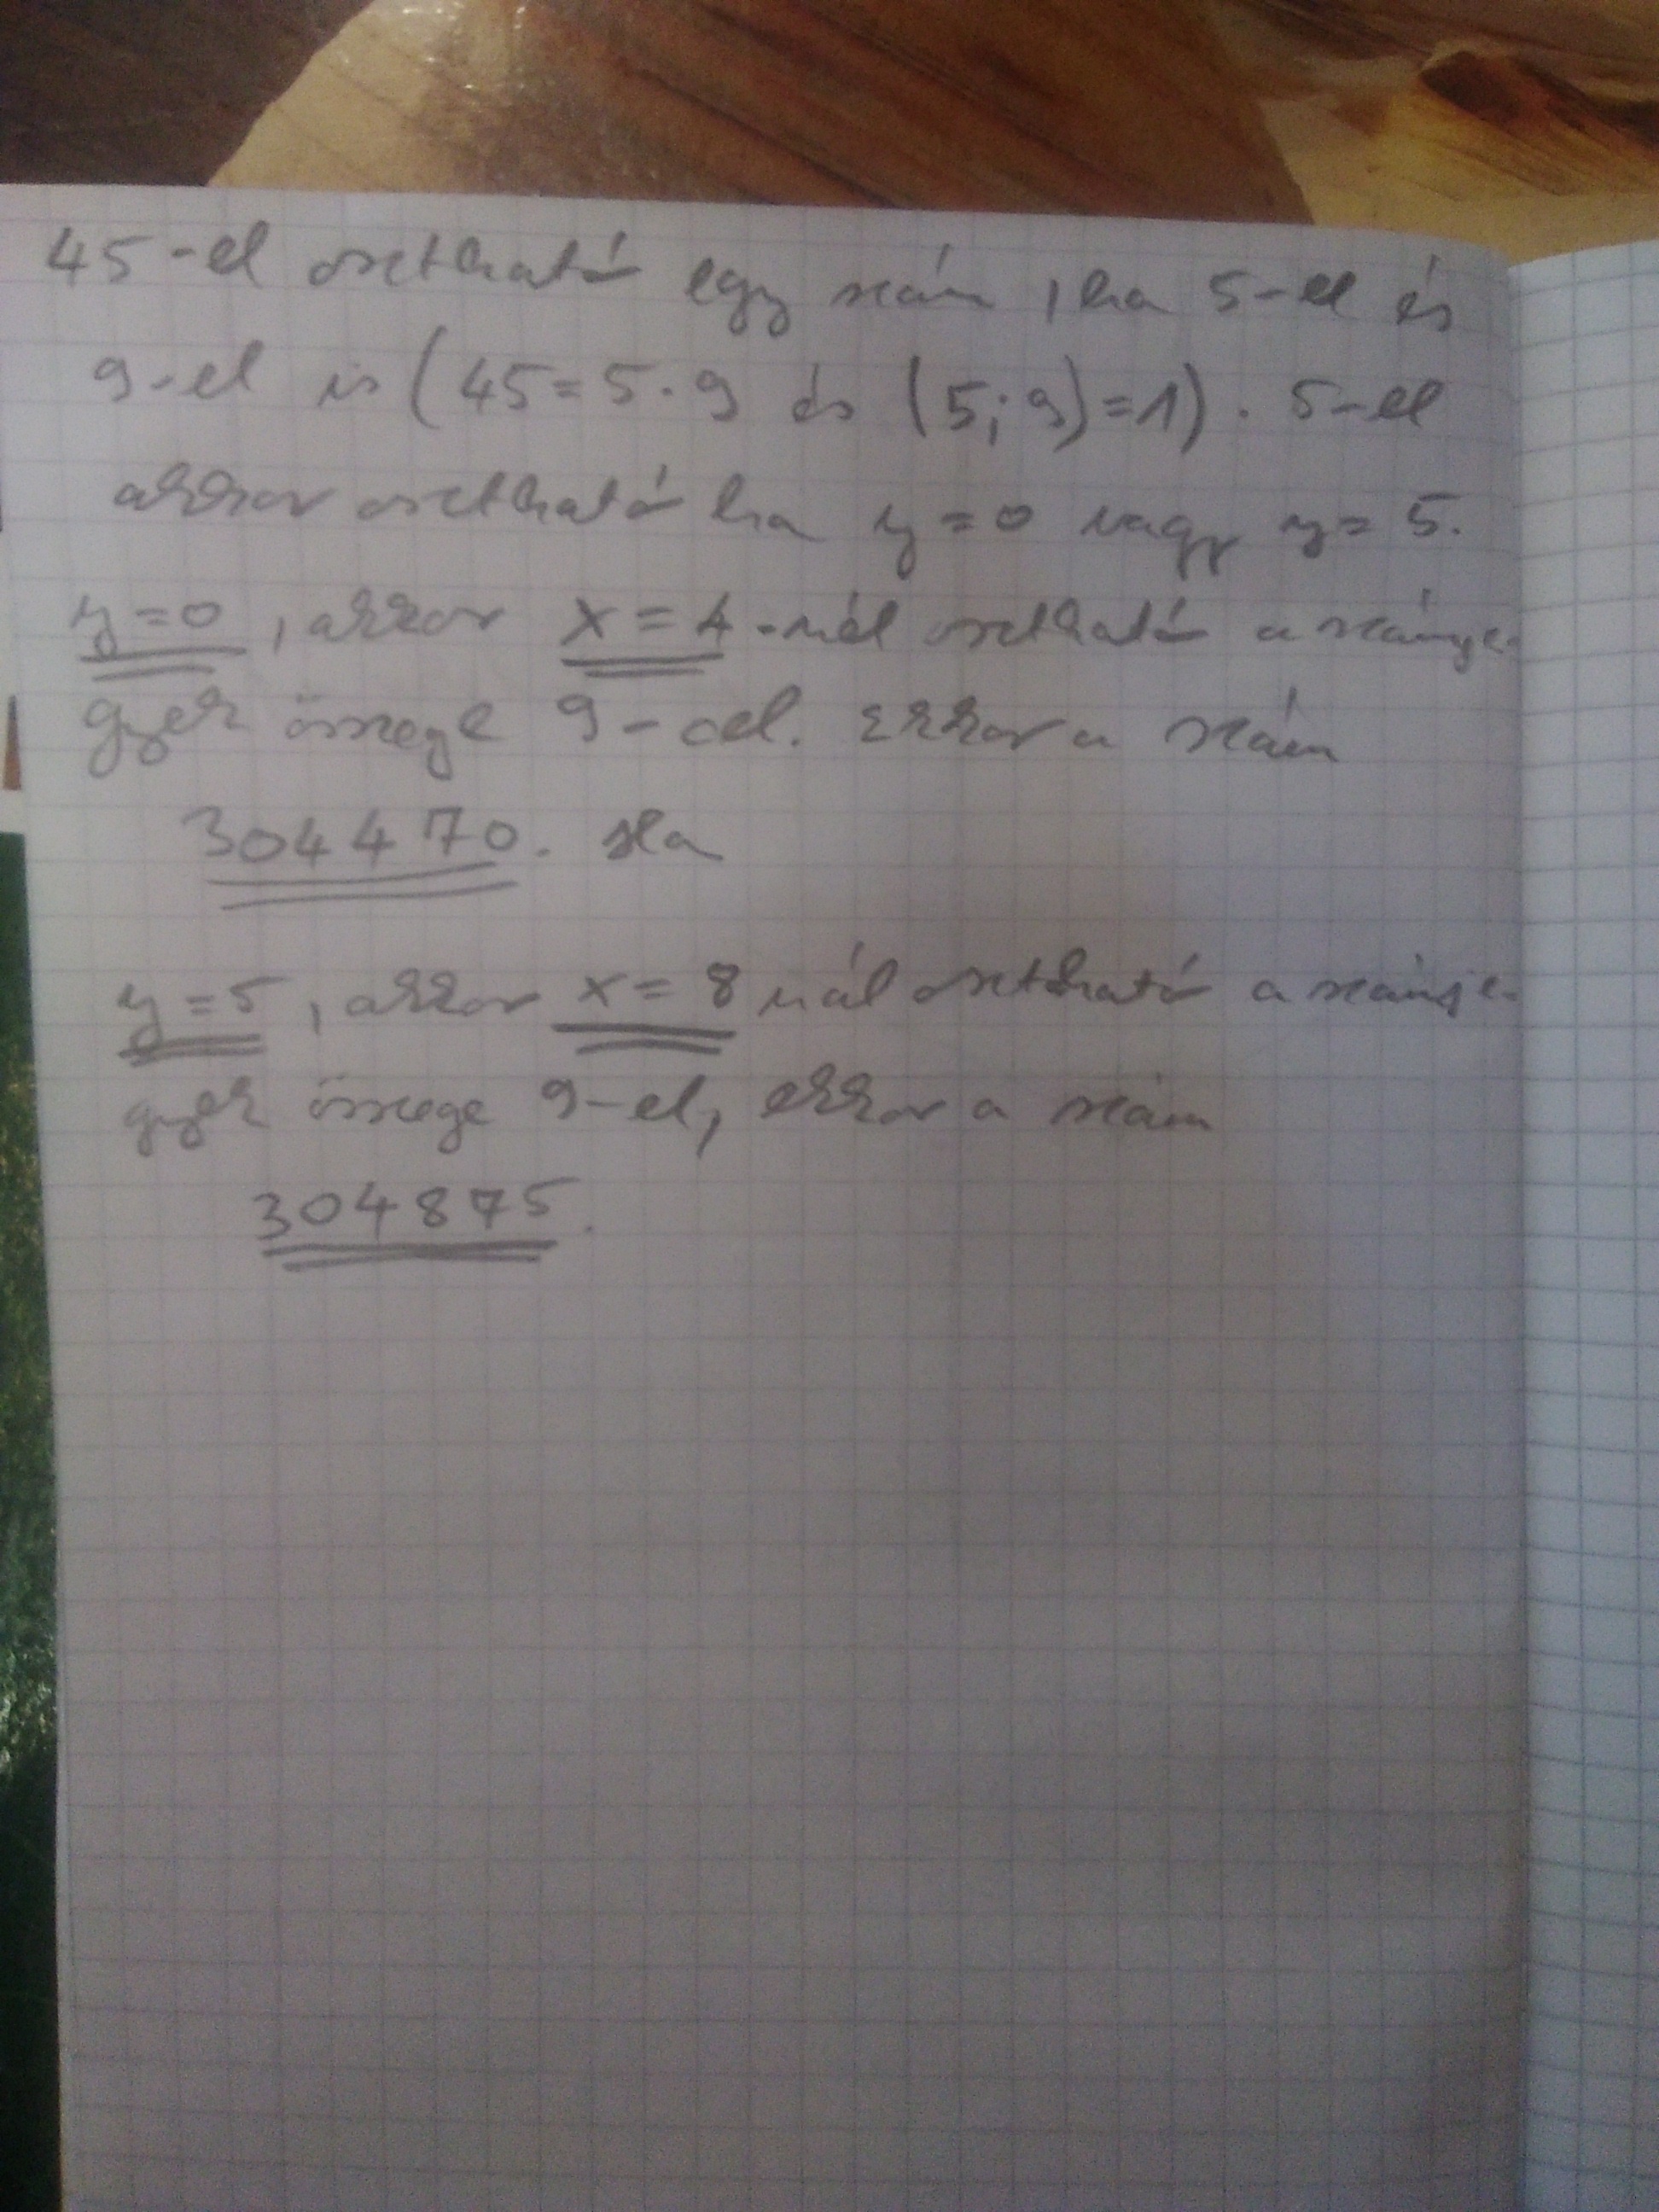 45-el osztható egy szám, ha 5-el és
9-el is (45=5·9 és (5;9)=1). 5-el
akkor osztható ha y=0 vagy y=5.
y=0, akkor x=4-nél osztható a számje-
gyek összege 9-cel. Ekkor a szám
304470. Ha
y=5, akkor x=8 nál osztható a számje-
gyek összege 9-el, ekkor a szám
304875.